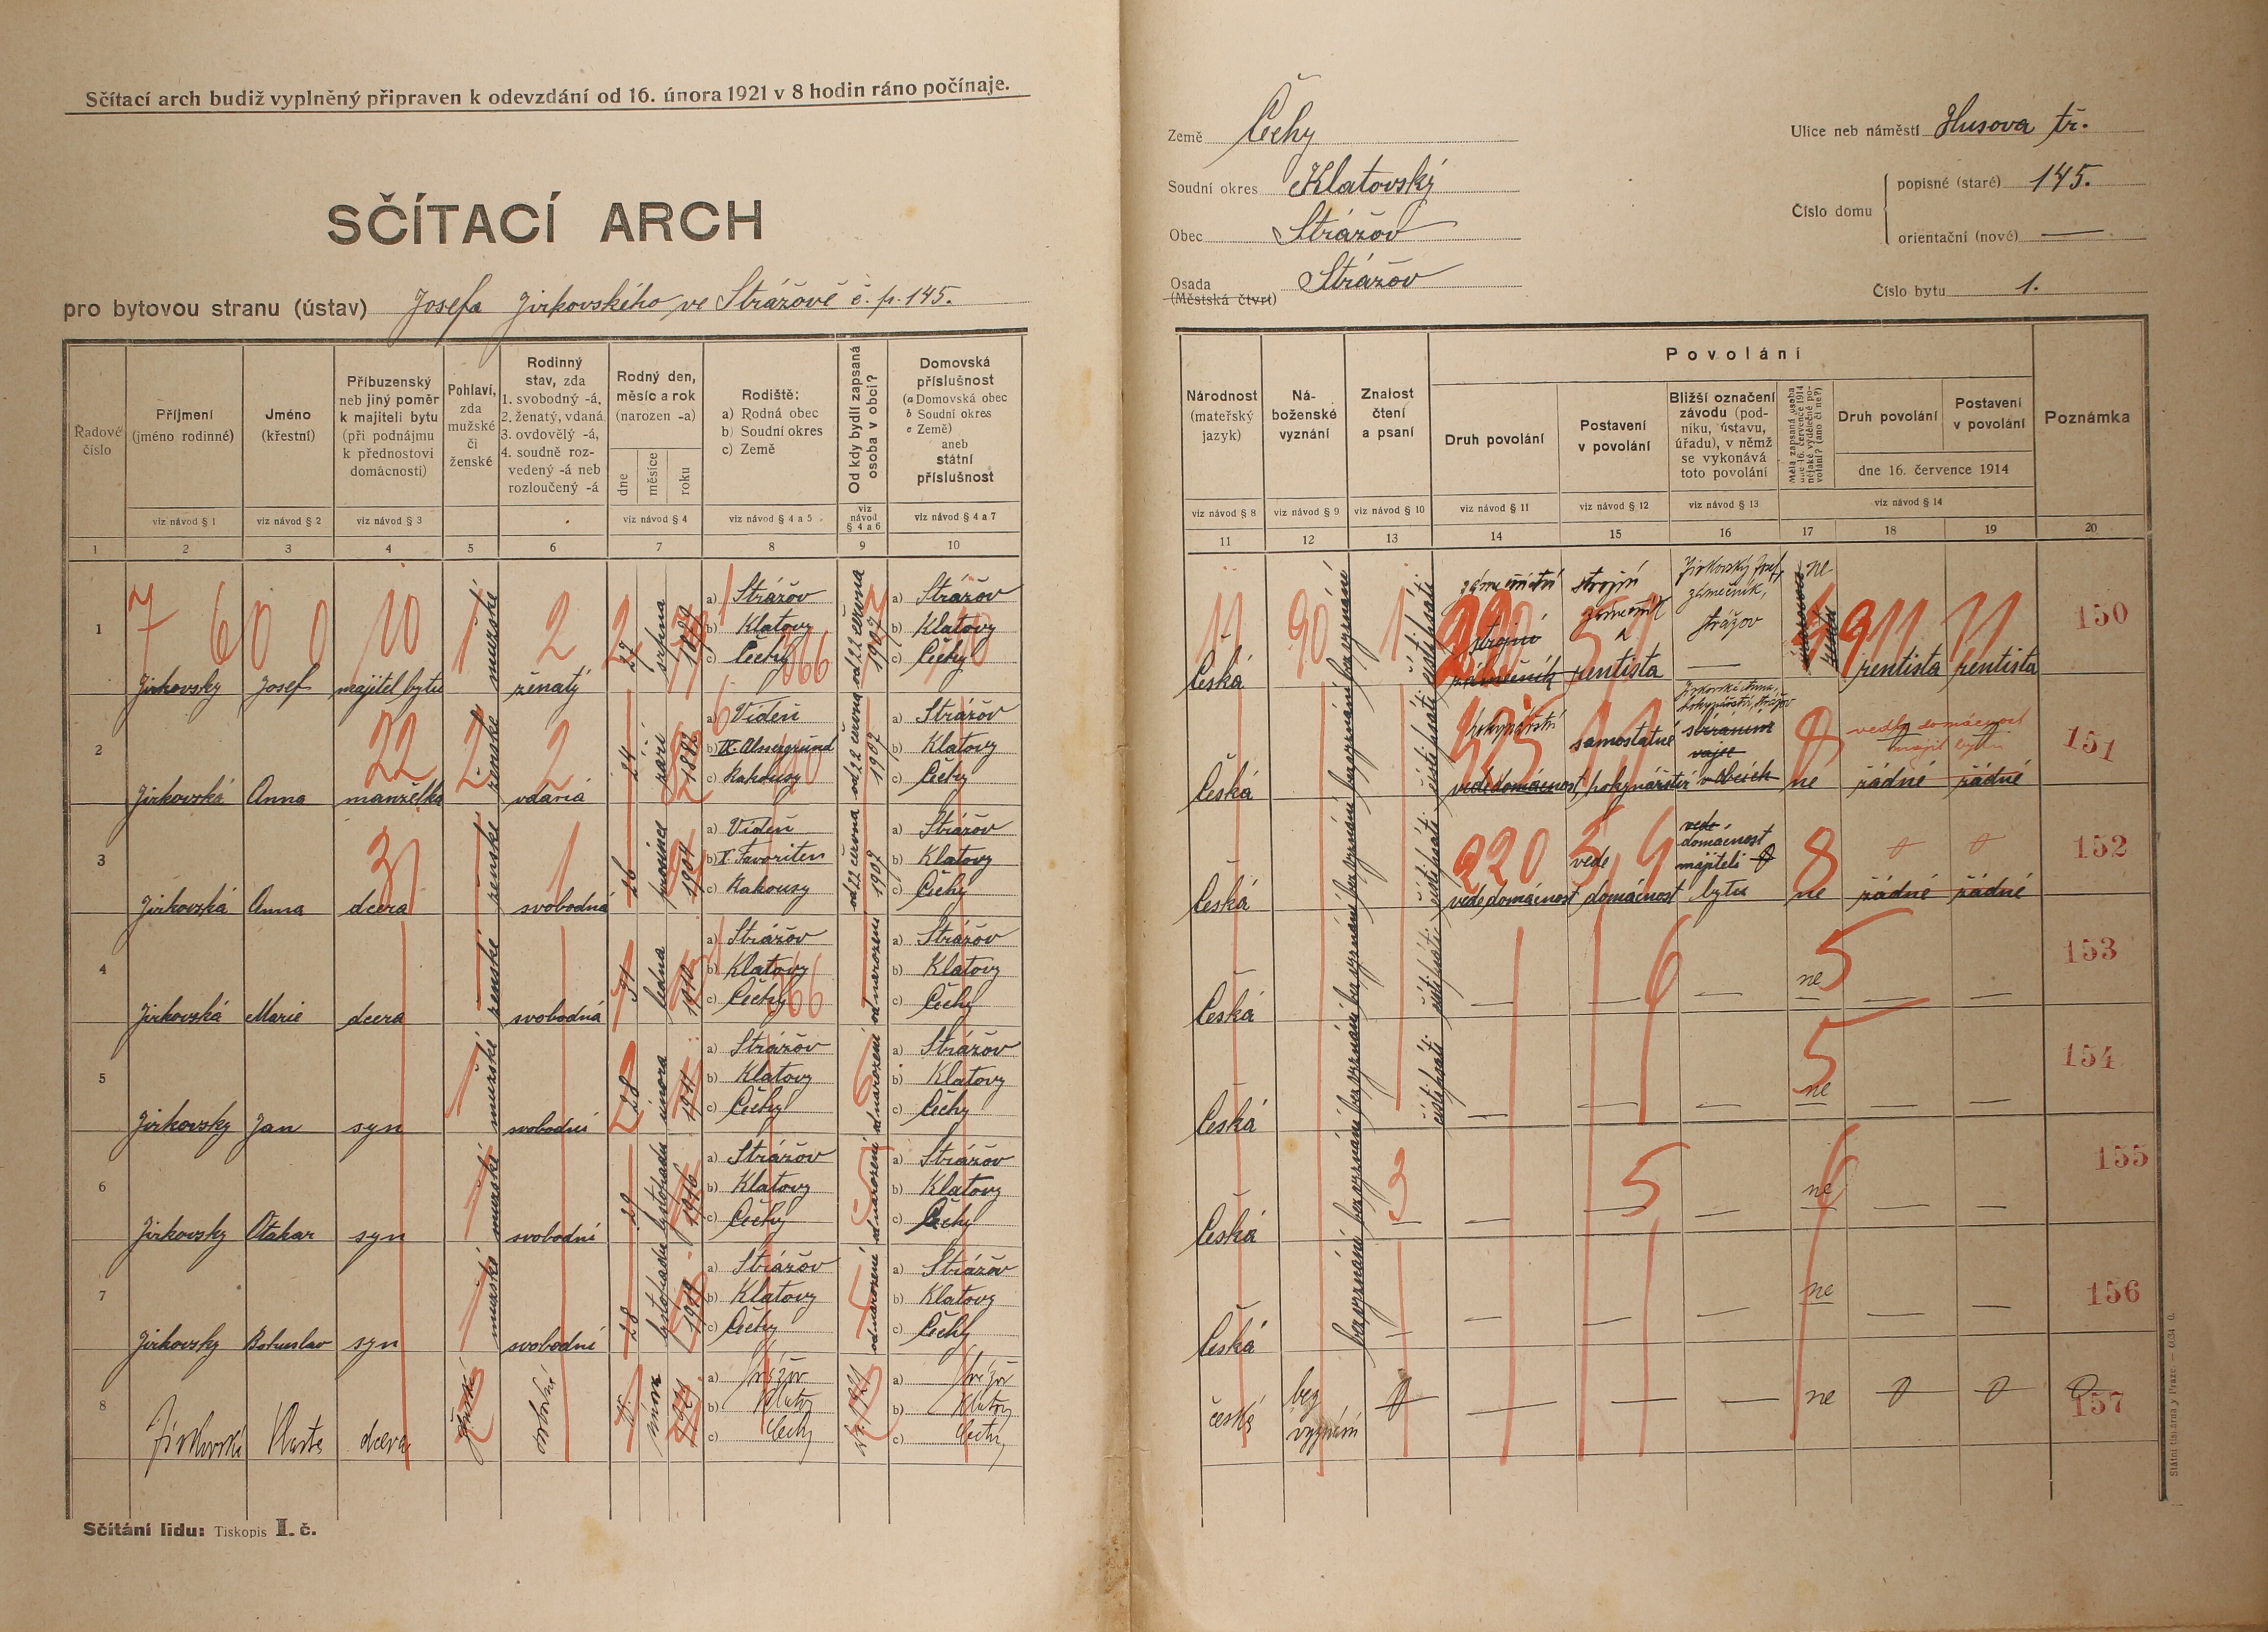 Sčítací arch budiž vyplněný připraven k odevzdání od 16. února 1921 v 8 hodin ráno počínaje.
SČÍTACÍ ARCH
pro bytovou stranu (ústav) Josefa Jirkovského ve Strážově č. p. 145.
Země Čechy
Soudní okres Klatovský
Obec Strážov
Osada Strážov
(Městská čtvrt)
Ulice neb náměstí Husova tř.
Číslo domu
popisné (staré) 145.
orientační (nové) —
Číslo bytu 1.
Řadové číslo
Příjmení (jméno rodinné)
Jméno (křestní)
Příbuzenský neb jiný poměr k majiteli bytu (při podnájmu k přednostovi domácnosti)
Pohlaví, zda mužské či ženské
Rodinný stav, zda 1. svobodný -á, 2. ženatý, vdaná 3. ovdovělý -á, 4. soudně rozvedený -á neb rozloučený -á
Rodný den, měsíc a rok (narozen -a)
dne měsíce roku
Rodiště: a) Rodná obec b) Soudní okres c) Země
Od kdy bydlí zapsaná osoba v obci?
Domovská příslušnost (a Domovská obec b Soudní okres c Země) aneb státní příslušnost
viz návod § 1 viz návod § 2 viz návod § 3 viz návod § 4 viz návod § 4 a 5 viz návod § 4 a 6 viz návod § 4 a 7
1 2 3 4 5 6 7 8 9 10
Národnost (mateřský jazyk)
Náboženské vyznání
Znalost čtení a psaní
Povolání
Druh povolání
Postavení v povolání
Bližší označení závodu (podniku, ústavu, úřadu), v němž se vykonává toto povolání
Měla zapsaná osoba dne 16. července 1914 nějaké výdělečné povolání? (ano či ne?)
Druh povolání
Postavení v povolání
dne 16. července 1914
Poznámka
viz návod § 8 viz návod § 9 viz návod § 10 viz návod § 11 viz návod § 12 viz návod § 13 viz návod § 14
11 12 13 14 15 16 17 18 19 20
1 Jirkovský Josef majitel bytu mužské ženatý 27 srpna 1879 a) Strážov b) Klatovy c) Čechy od 22 června 1907 a) Strážov b) Klatovy c) Čechy
Česká bez vyznání čísti psáti zámečnictví strojní zámečník rentista Jirkovský Josef, zámečník, Strážov — ne rentista rentista 150
2 Jirkovská Anna manželka ženské vdaná 24 září 1882 a) Vídeň b) IX. Alsergrund c) Rakousy od 22 června 1907 a) Strážov b) Klatovy c) Čechy
Česká bez vyznání čísti psáti hokynářství vede domácnost samostatné hokynářství Jirkovská Anna, hokynářství, Strážov sbíráním vajec v obcích ne žádné žádné 151
3 Jirkovská Anna dcera ženské svobodná 26 prosince 1904 a) Vídeň b) X. Favoriten c) Rakousy od 22 června 1907 a) Strážov b) Klatovy c) Čechy
Česká bez vyznání čísti psáti vede domácnost vede domácnost vede domácnost majiteli bytu ne žádné žádné 152
4 Jirkovská Marie dcera ženské svobodná 31 ledna 1910 a) Strážov b) Klatovy c) Čechy od narození a) Strážov b) Klatovy c) Čechy
Česká bez vyznání čísti psáti — — — ne — — 153
5 Jirkovský Jan syn mužské svobodný 28 února 1911 a) Strážov b) Klatovy c) Čechy od narození a) Strážov b) Klatovy c) Čechy
Česká bez vyznání čísti psáti — — — ne — — 154
6 Jirkovský Otakar syn mužské svobodný 29 listopadu 1916 a) Strážov b) Klatovy c) Čechy od narození a) Strážov b) Klatovy c) Čechy
Česká bez vyznání — — — — ne — — 155
7 Jirkovský Bohuslav syn mužské svobodný 28 listopadu 1919 a) Strážov b) Klatovy c) Čechy od narození a) Strážov b) Klatovy c) Čechy
Česká bez vyznání — — — — ne — — 156
8 Jirkovská Vlasta dcera ženské svobodná února 1921 a) Strážov b) Klatovy c) Čechy a) Strážov b) Klatovy c) Čechy
česká bez vyznání 0 — — — ne 0 0 157
Sčítání lidu: Tiskopis I. č.
Státní tiskárna v Praze